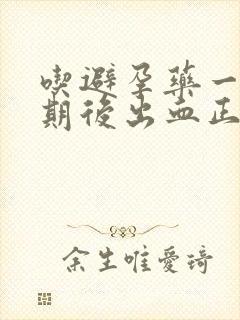 喫避孕藥一
期後出血正
余生唯愛琦